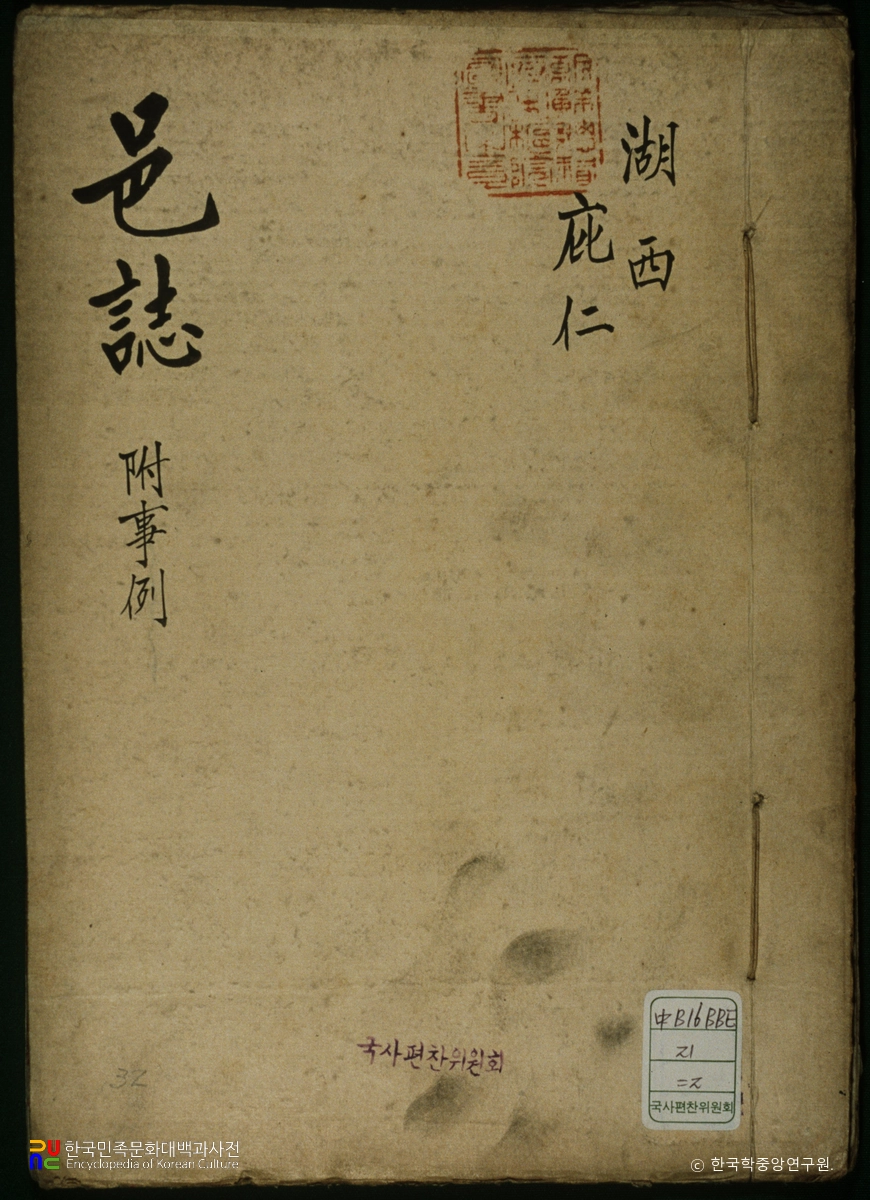 湖西
庇仁
邑誌
附事例
국사편찬위원회
32
中B16BBE
국사편찬위원회
한국민족문화대백과사전
Encyclopedia of Korean Culture
© 한국학중앙연구원.